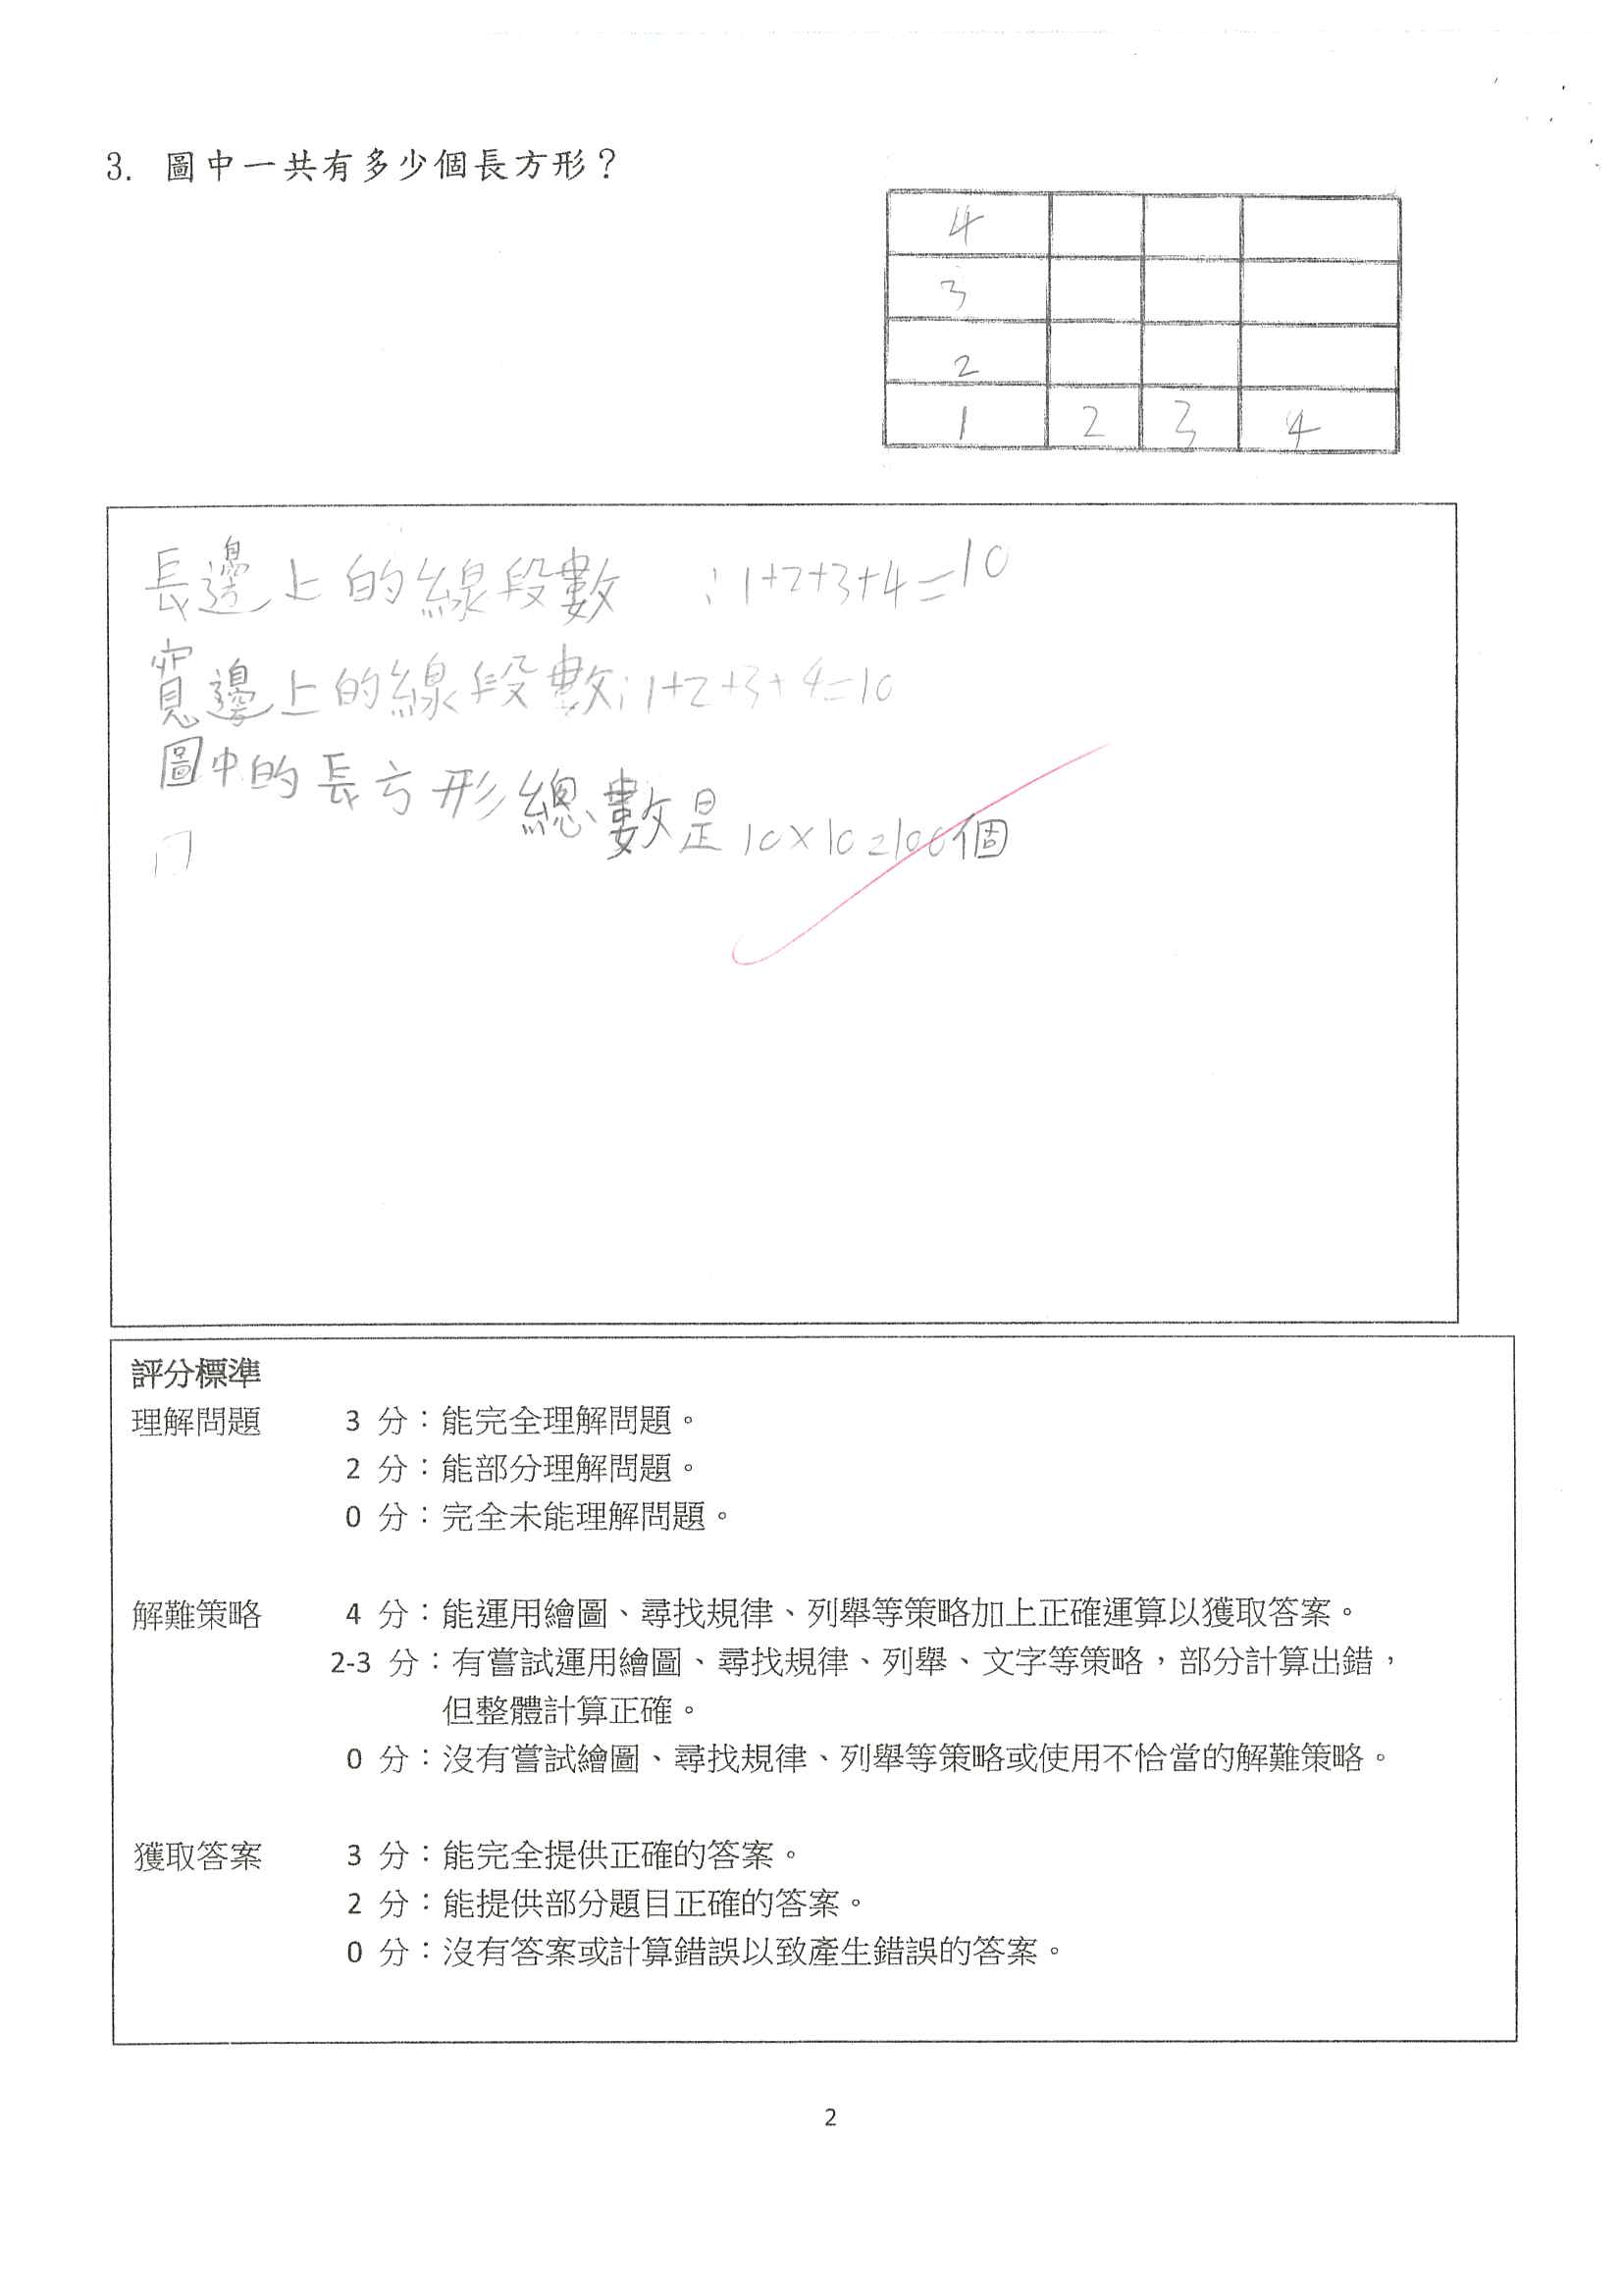 3. 圖中一共有多少個長方形？
4
3
2
1 2 3 4
長邊上的線段數：1+2+3+4=10
寬邊上的線段數：1+2+3+4=10
圖中的長方形總數是10×10=100個
評分標準
理解問題 3 分：能完全理解問題。
2 分：能部分理解問題。
0 分：完全未能理解問題。
解難策略 4 分：能運用繪圖、尋找規律、列舉等策略加上正確運算以獲取答案。
2-3 分：有嘗試運用繪圖、尋找規律、列舉、文字等策略，部分計算出錯，
但整體計算正確。
0 分：沒有嘗試繪圖、尋找規律、列舉等策略或使用不恰當的解難策略。
獲取答案 3 分：能完全提供正確的答案。
2 分：能提供部分題目正確的答案。
0 分：沒有答案或計算錯誤以致產生錯誤的答案。
2